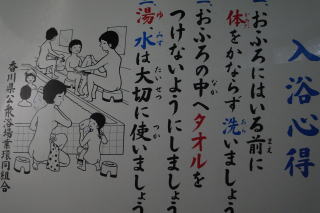 入浴心得
一、おふろにはいる前に
体をかならず洗いましょう
一、おふろの中へタオルを
つけないようにしましょう
一、湯水は大切に使いましょう
香川県公衆浴場業環同組合